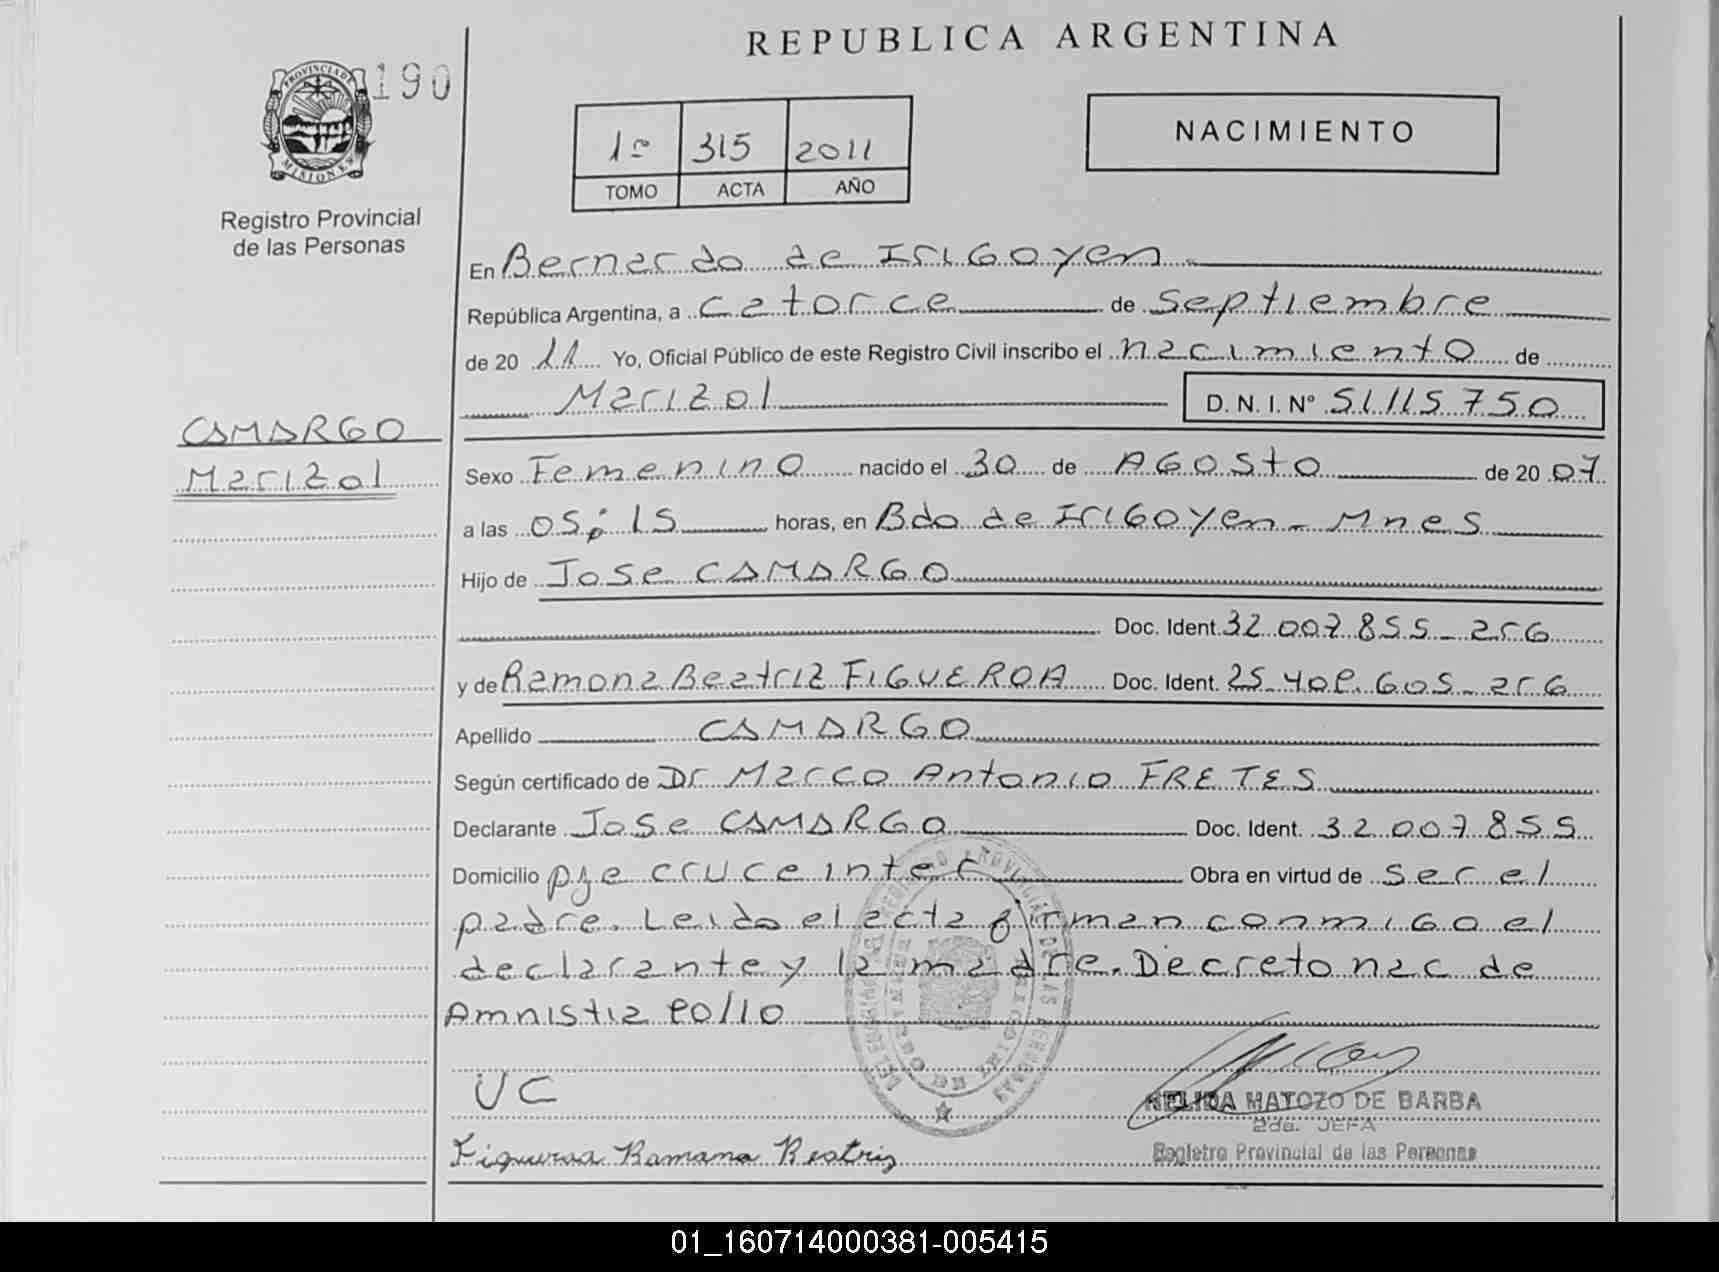 REPUBLICA ARGENTINA
PROVINCIA DE MISIONES
190
Registro Provincial
de las Personas
1º 315 2011
TOMO ACTA AÑO
NACIMIENTO
En Bernardo de IriGoyen
República Argentina, a catorce de septiembre
de 20 11 Yo, Oficial Público de este Registro Civil inscribo el nacimiento de
Marizol D. N. I. Nº 51115750
CAMARGO
Marizol
Sexo Femenino nacido el 30 de AGosto de 20 07
a las 05; 15 horas, en Bdo de IriGoyen - Mnes
Hijo de Jose CAMARGO
Doc. Ident. 32.007.855 - arG
y de Ramona Beatriz FIGUEROA Doc. Ident. 25-408.605 - arG
Apellido CAMARGO
Según certificado de Dr Marco Antonio FRETES
Declarante Jose CAMARGO Doc. Ident. 32.007.855
Domicilio pje cruce inter Obra en virtud de ser el
padre. Leido el acta firman conmiGo el
declarante y la madre. Decreto nac de
Amnistia 90/10
UC
NELIDA MATOZO DE BARBA
2da. JEFA
Registro Provincial de las Personas
Figueroa Ramona Beatriz
01_160714000381-005415